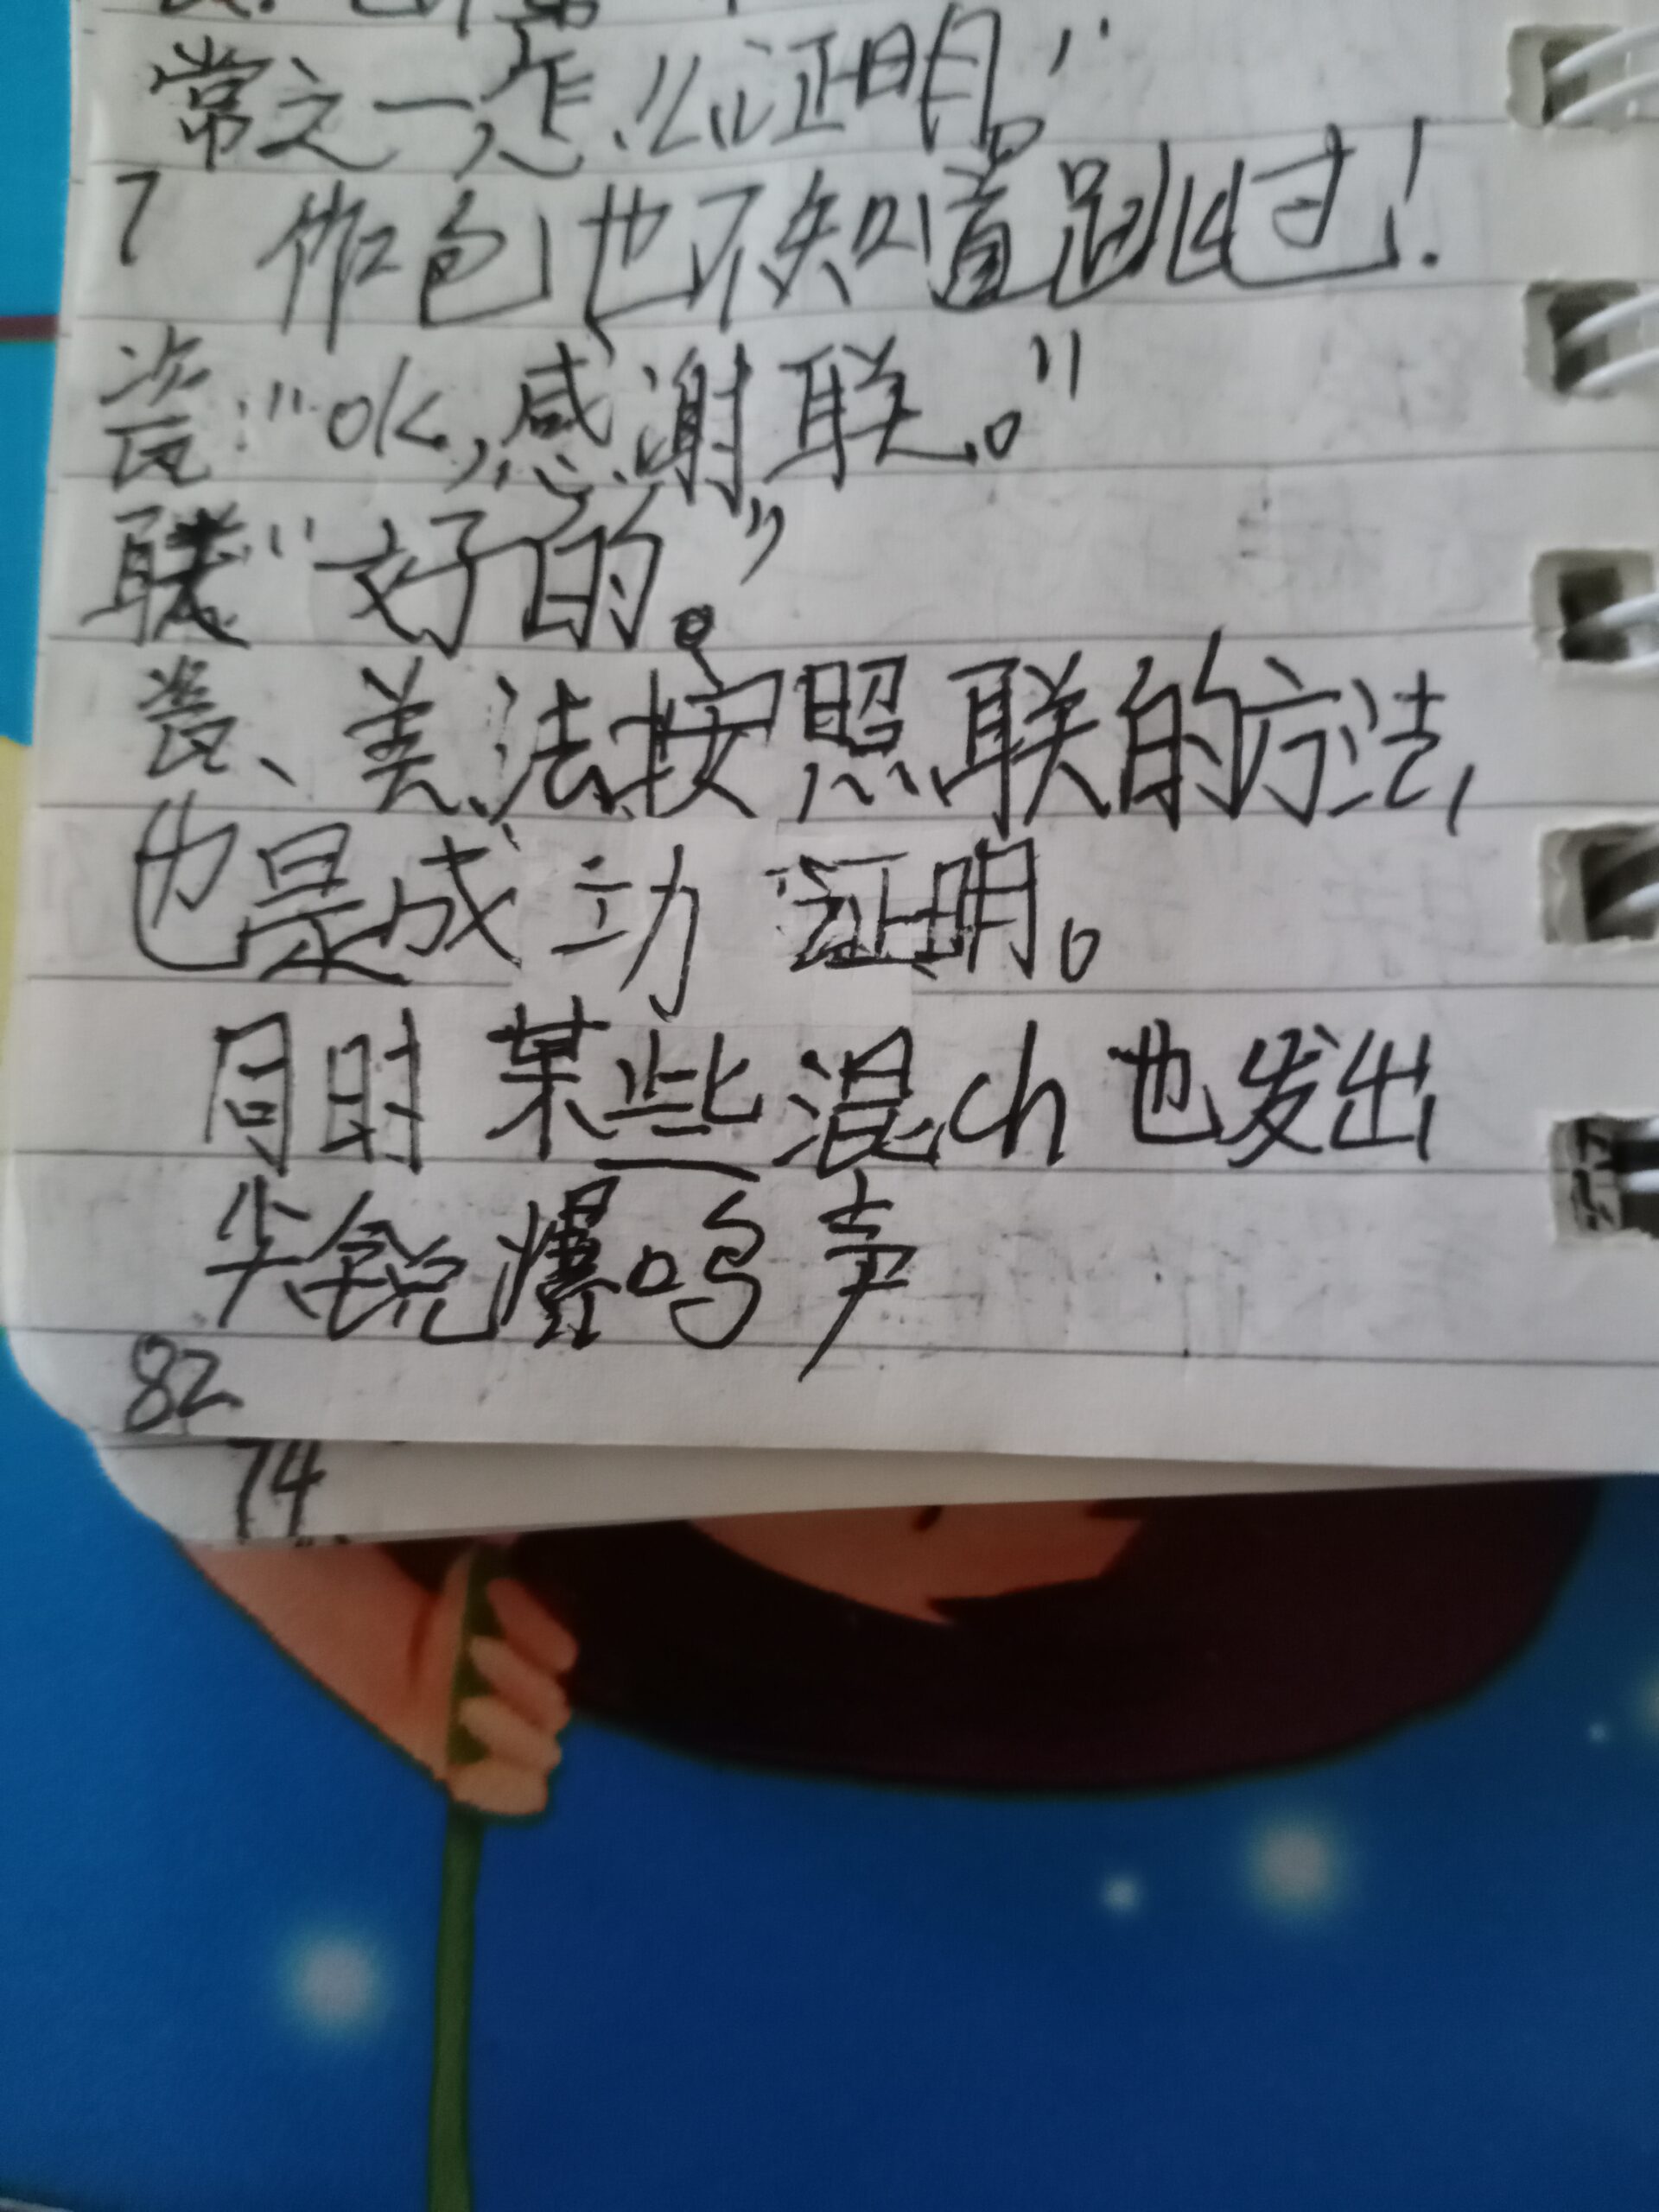 常之一,怎么证明。"
7 作包也不知道跳过!
瓷:"ok,感谢联。"
联"好的。"
瓷、美、法按照联的方法,
也是成功证明。
同时某些混ch也发出
尖锐爆鸣声
82
74